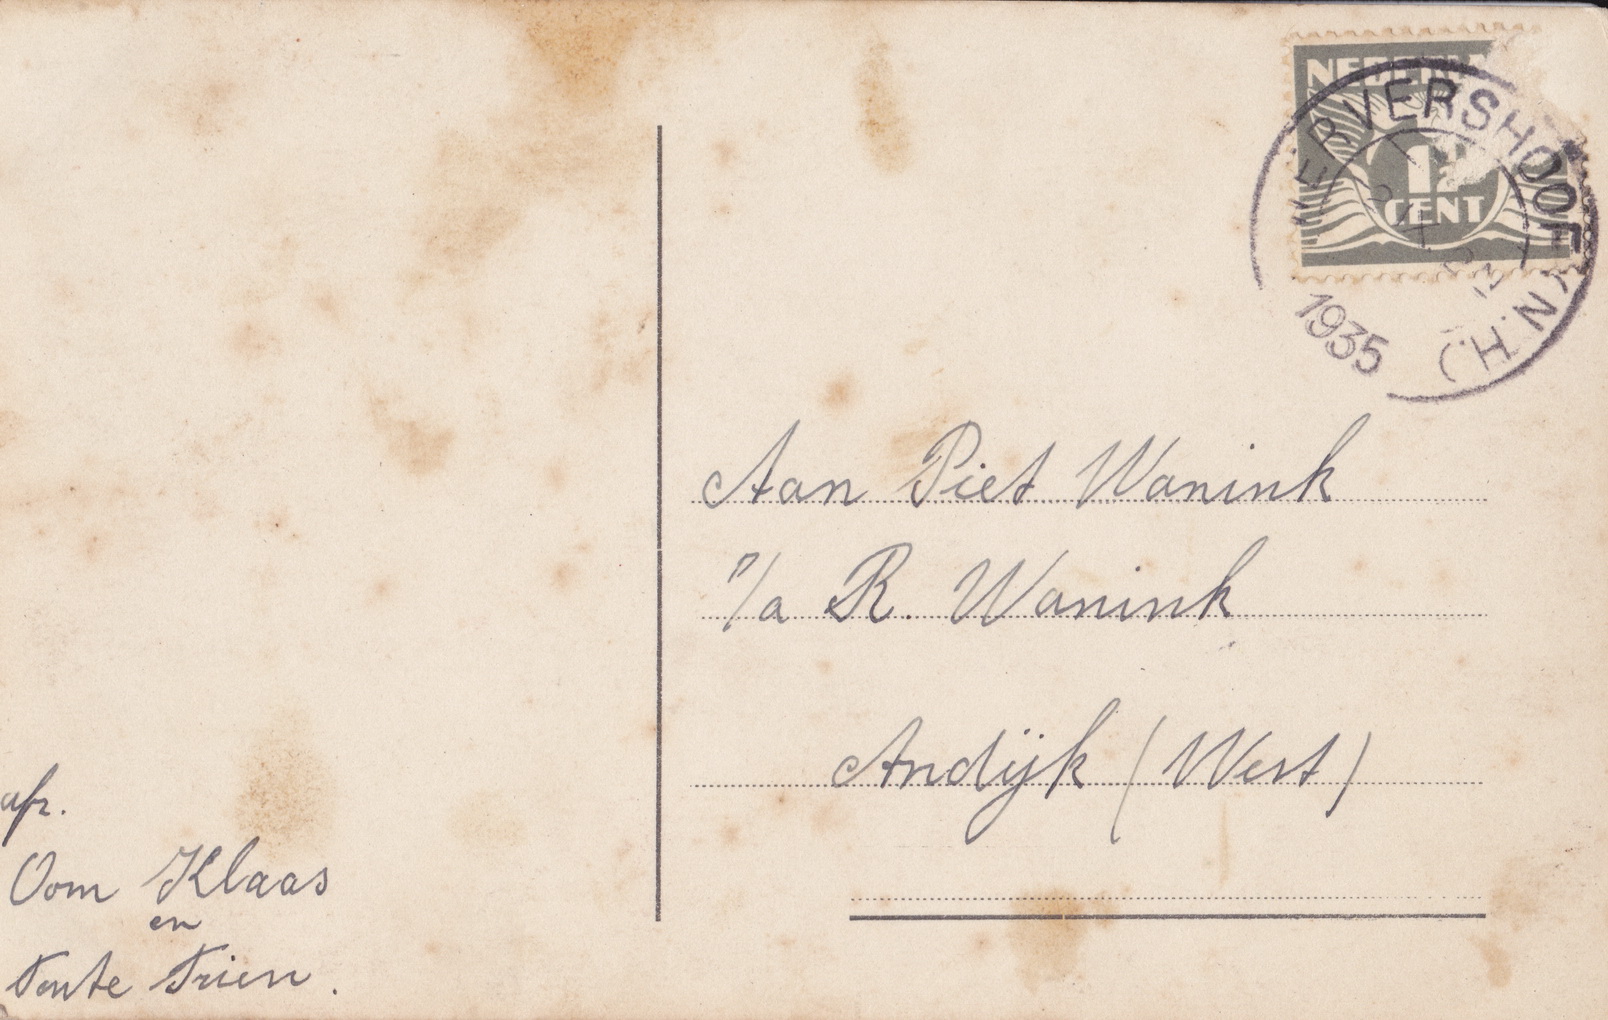 NEDERLA
1½
CENT
WERVERSHOOF (N.H.)
1935
Aan Piet Wanink
p/a R. Wanink
Andijk (West)
afz.
Oom Klaas
en
Tante Trien.